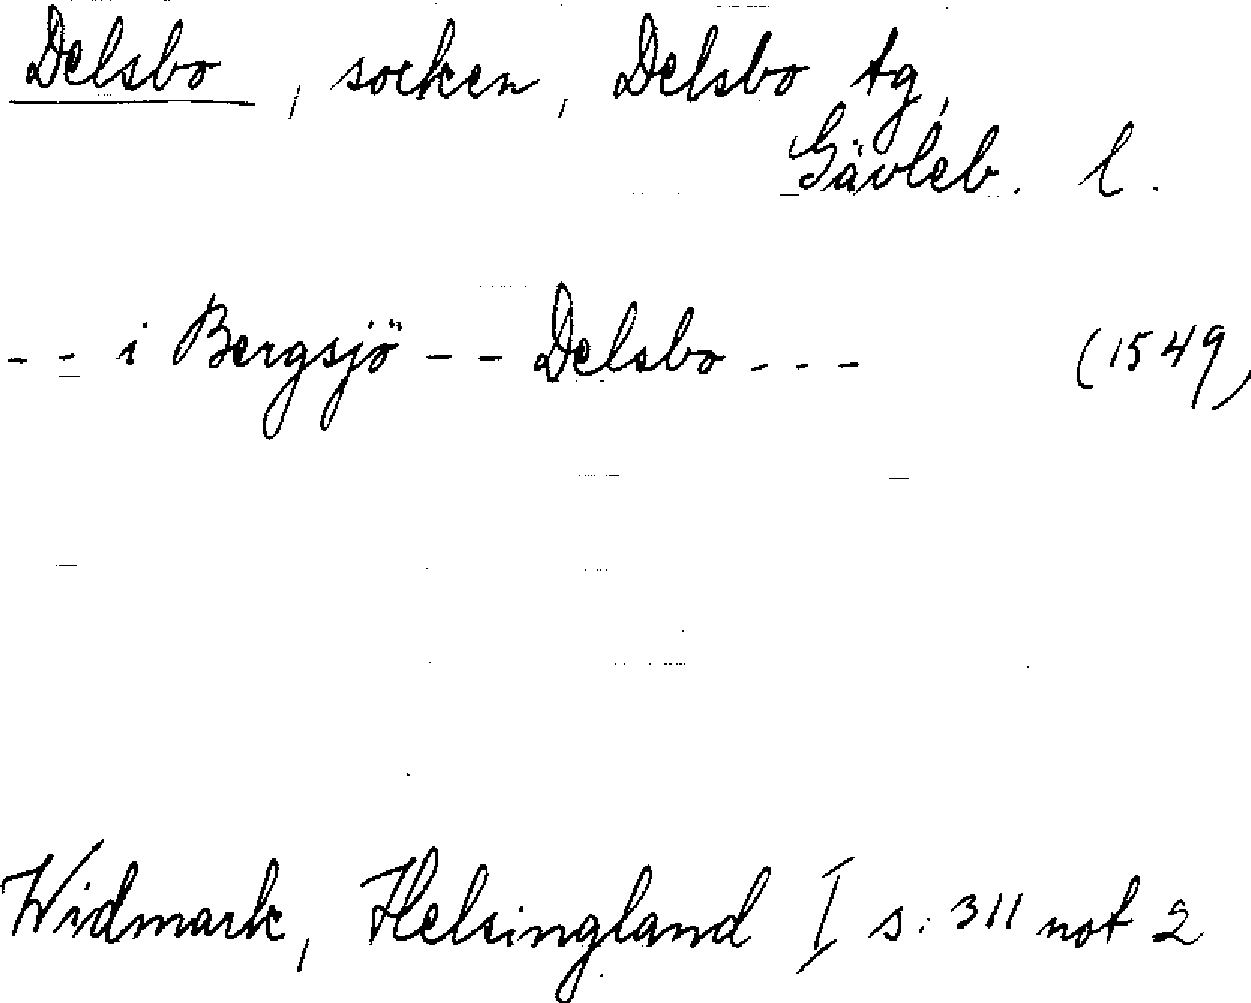 Delsbo, socken, Delsbo tg,
Gävleb. l.
-- i Bergsjö -- Delsbo --- (1549)
Widmark, Helsingland I s. 311 not 2